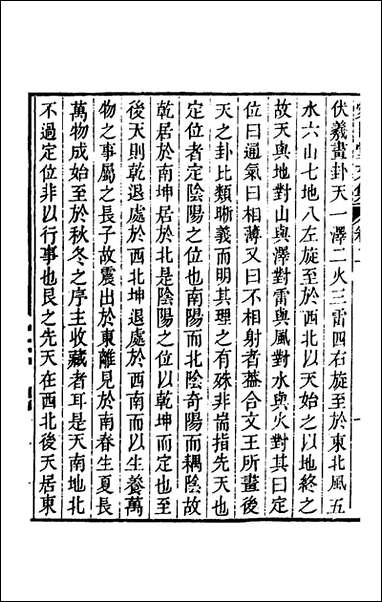 伏羲畫卦天一澤二火三雷四右旋至於東北風五
水六山七地八左旋至於西北以天始之以地終之
故天與地對山與澤對雷與風對水與火對其曰定
位曰通氣曰相薄又曰不相射者葢合文王所畫後
天之卦比類晰義而明其理之有殊非耑指先天也
定位者定陰陽之位也南陽而北陰奇陽而耦陰故
乾居於南坤居於北是陰陽之位以乾坤而定也至
後天則乾退處於西北坤退處於西南而以生養萬
物之事屬之長子故震出於東離見於南春生夏長
萬物成始至於秋冬之序主收藏者耳是天南地北
不過定位非以行事也艮之先天在西北後天居東